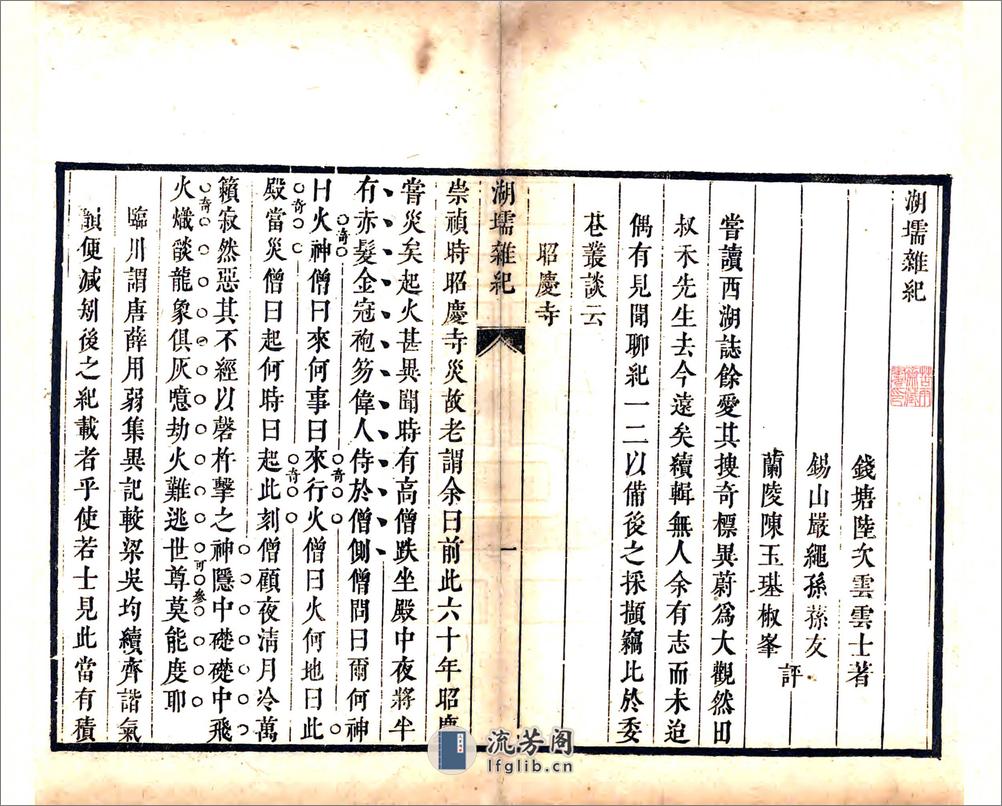 湖壖雜紀
錢塘陸次雲雲士著
錫山嚴繩孫蓀友
蘭陵陳玉璂椒峯
評
嘗讀西湖誌餘愛其搜奇標異蔚爲大觀然田
叔禾先生去今遠矣續輯無人余有志而未迨
偶有見聞聊紀一二以備後之採擷竊比於委
巷叢談云
昭慶寺
湖壖雜紀
一
崇禎時昭慶寺災故老謂余曰前此六十年昭慶
嘗災矣起火甚異聞時有高僧趺坐殿中夜將半
有赤髮金冠袍笏偉人侍於僧側僧問曰爾何神
曰火神僧曰來何事曰來行火僧曰火何地曰此
奇
奇
殿當災僧曰起何時曰起此刻僧顧夜淸月冷萬
奇
奇
籟寂然惡其不經以磬杵擊之神隱中礎礎中飛
火熾燄龍象俱灰噫劫火難逃世尊莫能度耶
奇
可參
臨川謂唐薛用弱集異記較梁吳均續齊諧氣
韻便減矧後之紀載者乎使若士見此當有積
流芳阁
lfglib.cn